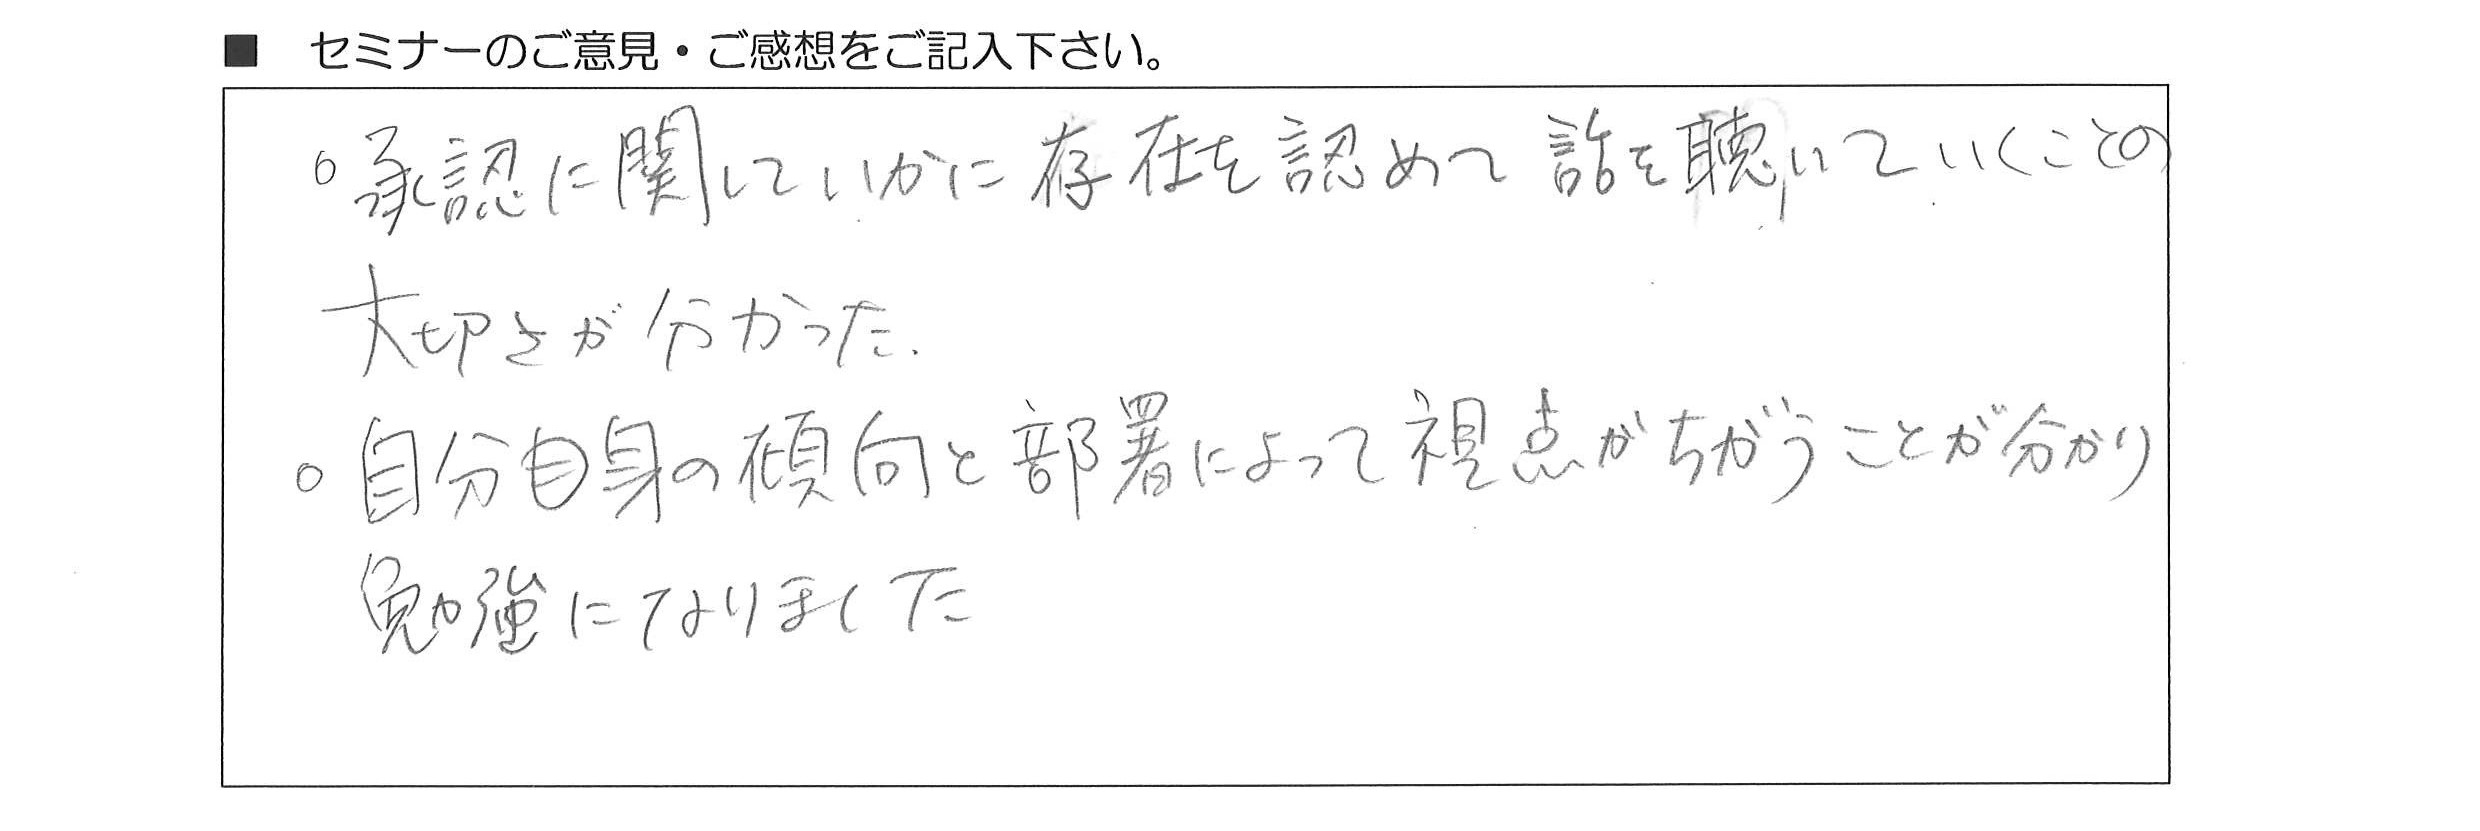 ■ セミナーのご意見・ご感想をご記入下さい。
○承認に関していかに存在を認めて話を聴いていくことの
大切さが分かった.
○自分自身の傾向と部署によって視点がちがうことが分かり
勉強になりました